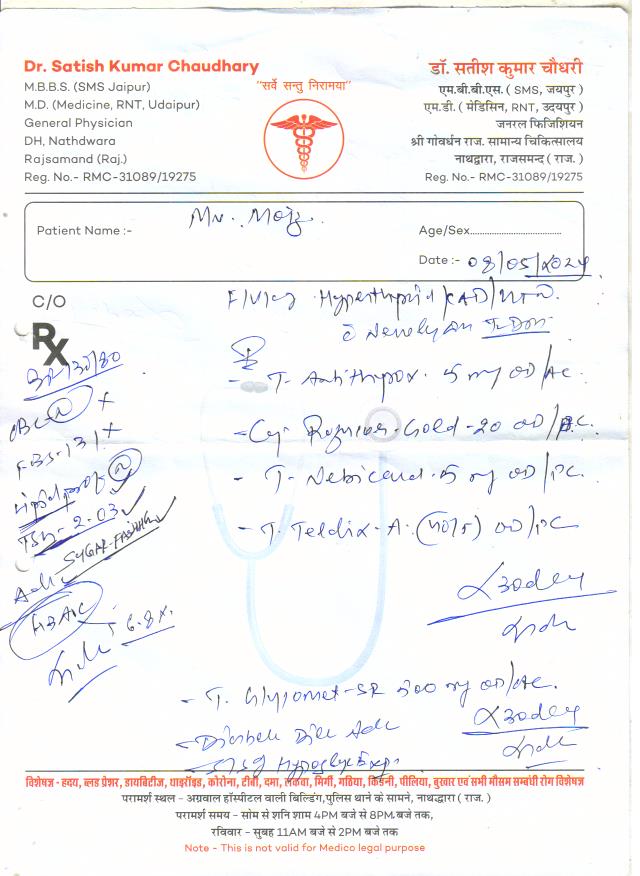 Dr. Satish Kumar Chaudhary
M.B.B.S. (SMS Jaipur)
M.D. (Medicine, RNT, Udaipur)
General Physician
DH, Nathdwara
Rajsamand (Raj.)
Reg. No.- RMC-31089/19275
"सर्वे सन्तु निरामया"
डॉ. सतीश कुमार चौधरी
एम.बी.बी.एस. ( SMS, जयपुर )
एम.डी. ( मेडिसिन, RNT, उदयपुर )
जनरल फिजिशियन
श्री गोवर्धन राज. सामान्य चिकित्सालय
नाथद्वारा, राजसमन्द ( राज. )
Reg. No.- RMC-31089/19275
Patient Name :- Mr.
Age/Sex
Date :- 08/05/2024
C/O
Rx
BP-130/80
FBS-131
TSH-2.03
SUGAR-FASTING
HBA1C
6.8%
Hyperthyroid/CAD/HTN
Newly T2DM
- T. Antithyrox. 5 mg OD/AC.
Gold-20 OD/
- T. Nebicard-5 mg OD/PC.
- T. Teldix-A. (40/5) OD/PC
x30day
- T. Glycomet-SR 500 mg OD/AC.
- Diabetic Diet Adv
x30day
विशेषज्ञ - हृदय, ब्लड प्रेशर, डायबिटीज, थाइरॉइड, कोरोना, टीबी, दमा, लकवा, मिर्गी, गठिया, किडनी, पीलिया, बुखार एवं सभी मौसम सम्बंधी रोग विशेषज्ञ
परामर्श स्थल - अग्रवाल हॉस्पीटल वाली बिल्डिंग,पुलिस थाने के सामने, नाथद्वारा ( राज. )
परामर्श समय - सोम से शनि शाम 4PM बजे से 8PM बजे तक,
रविवार - सुबह 11AM बजे से 2PM बजे तक
Note - This is not valid for Medico legal purpose